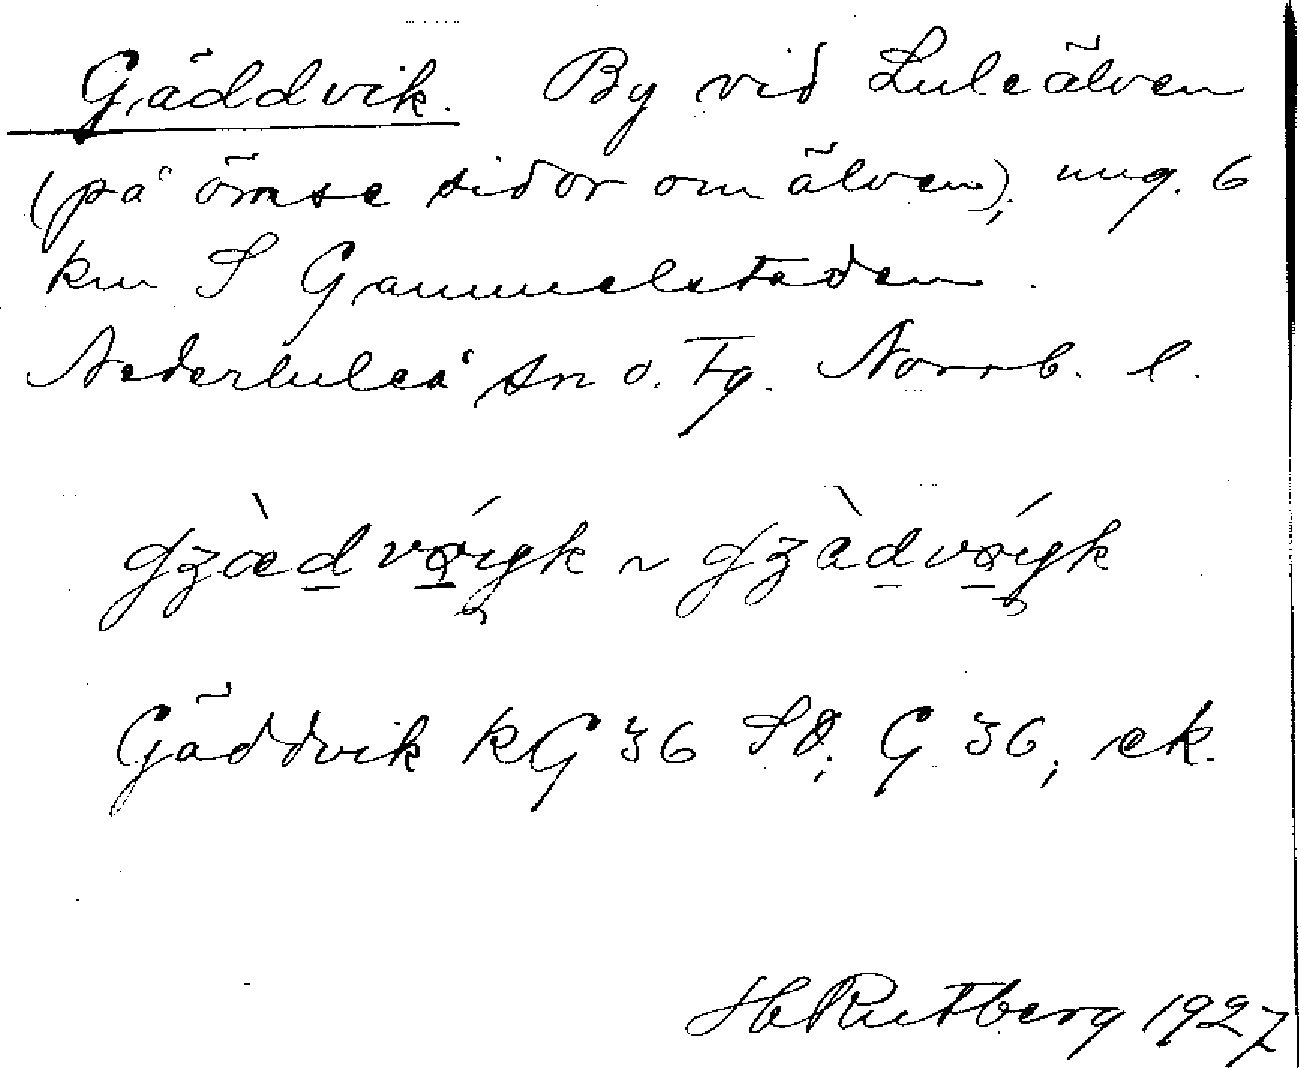 Gäddvik. By vid Luleälven
(på ömse sidor om älven), ung. 6
km S Gammelstaden.
Nederluleå sn o. tg. Norrb. l.
Gäddvik kG 36 SO; G 36, ek.
H Rutberg 1927